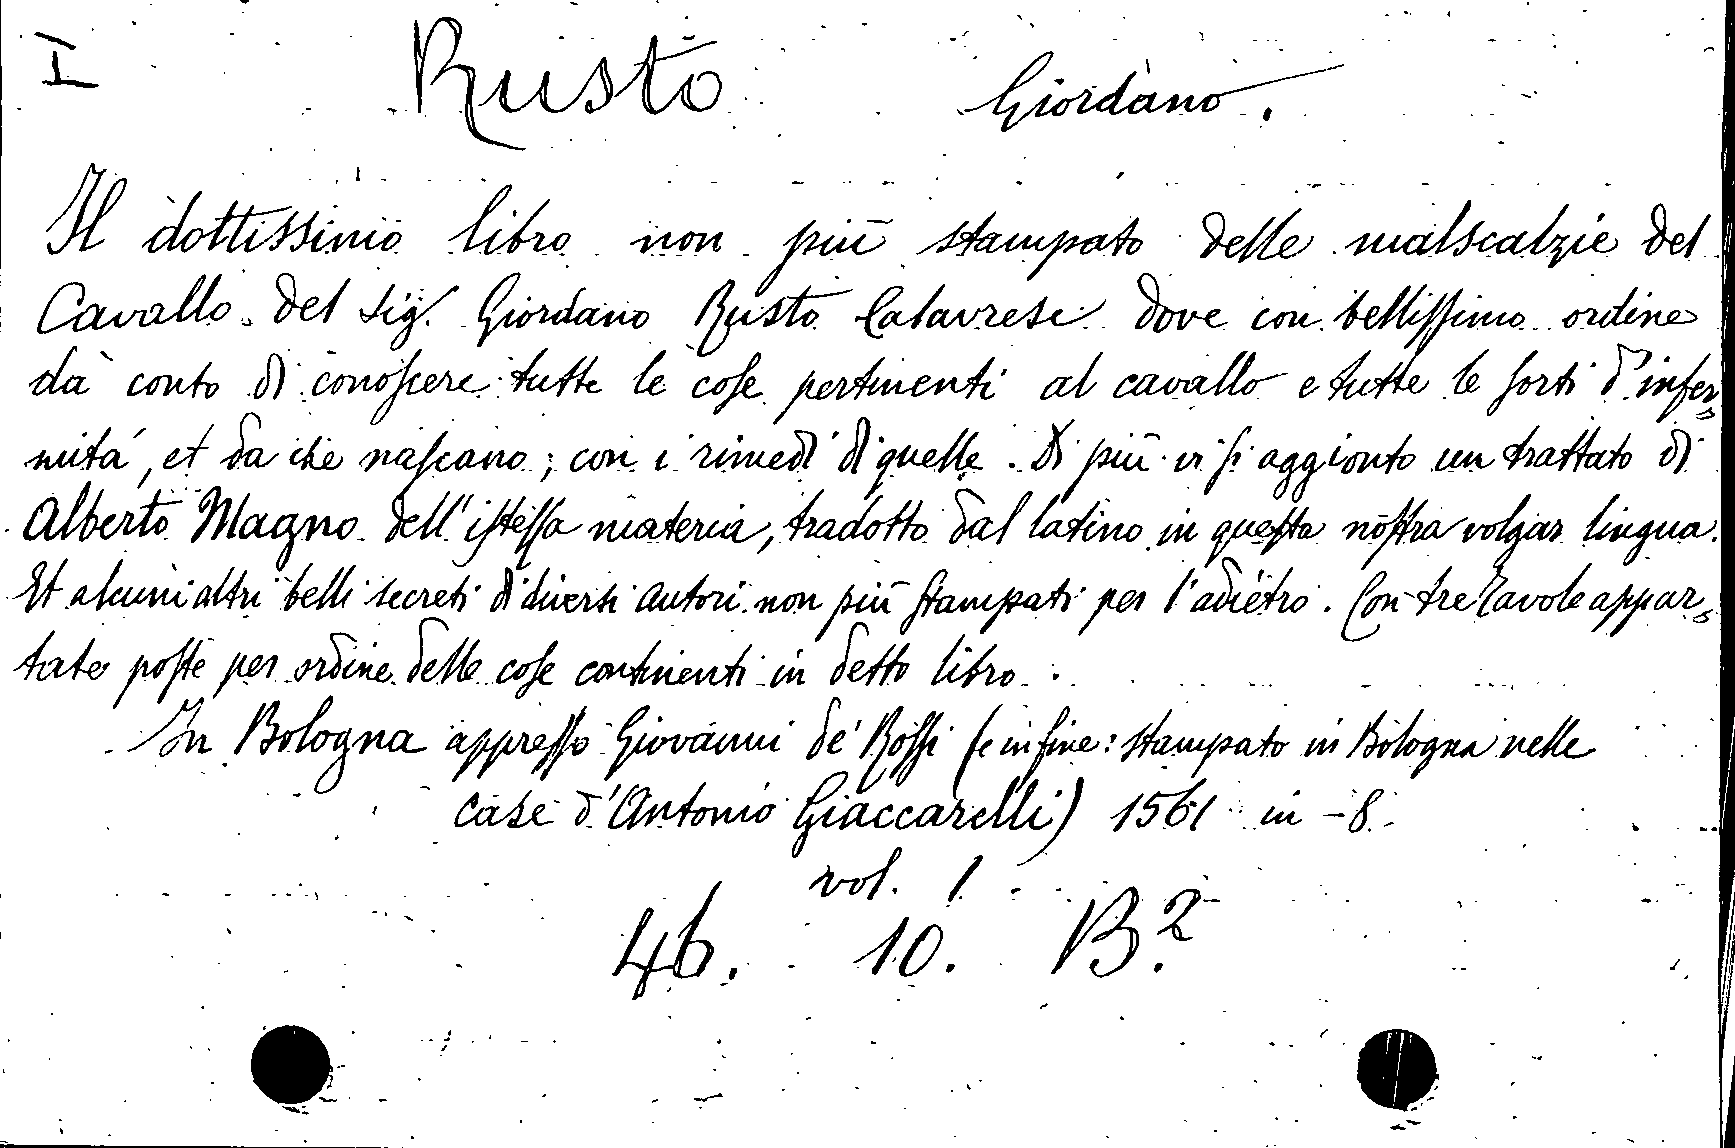 I Rusto Giordano.
Il dottissimo libro non più stampato delle malscalzie del
Cavallo del sig. Giordano Rusto Calavrese dove con bellissimo ordine
dà conto di conoscere tutte le cose pertinenti al cavallo e tutte le sorti d'infer=
mità, et da che nascano; con i rimedi di quelle. Di più vi si aggionto un trattato di
Alberto Magno dell'istessa materia, tradotto dal latino in questa nostra volgar lingua.
Et alcuni altri belli secreti di diversi autori non più stampati per l'adietro. Con tre Tavole appar=
tate poste per ordine delle cose continenti in detto libro.
In Bologna appresso Giovanni de' Rossi (e in fine: stampato in Bologna nelle
case d'Antonio Giaccarelli) 1561 in-8.
vol. 1.
46. 10. B.2